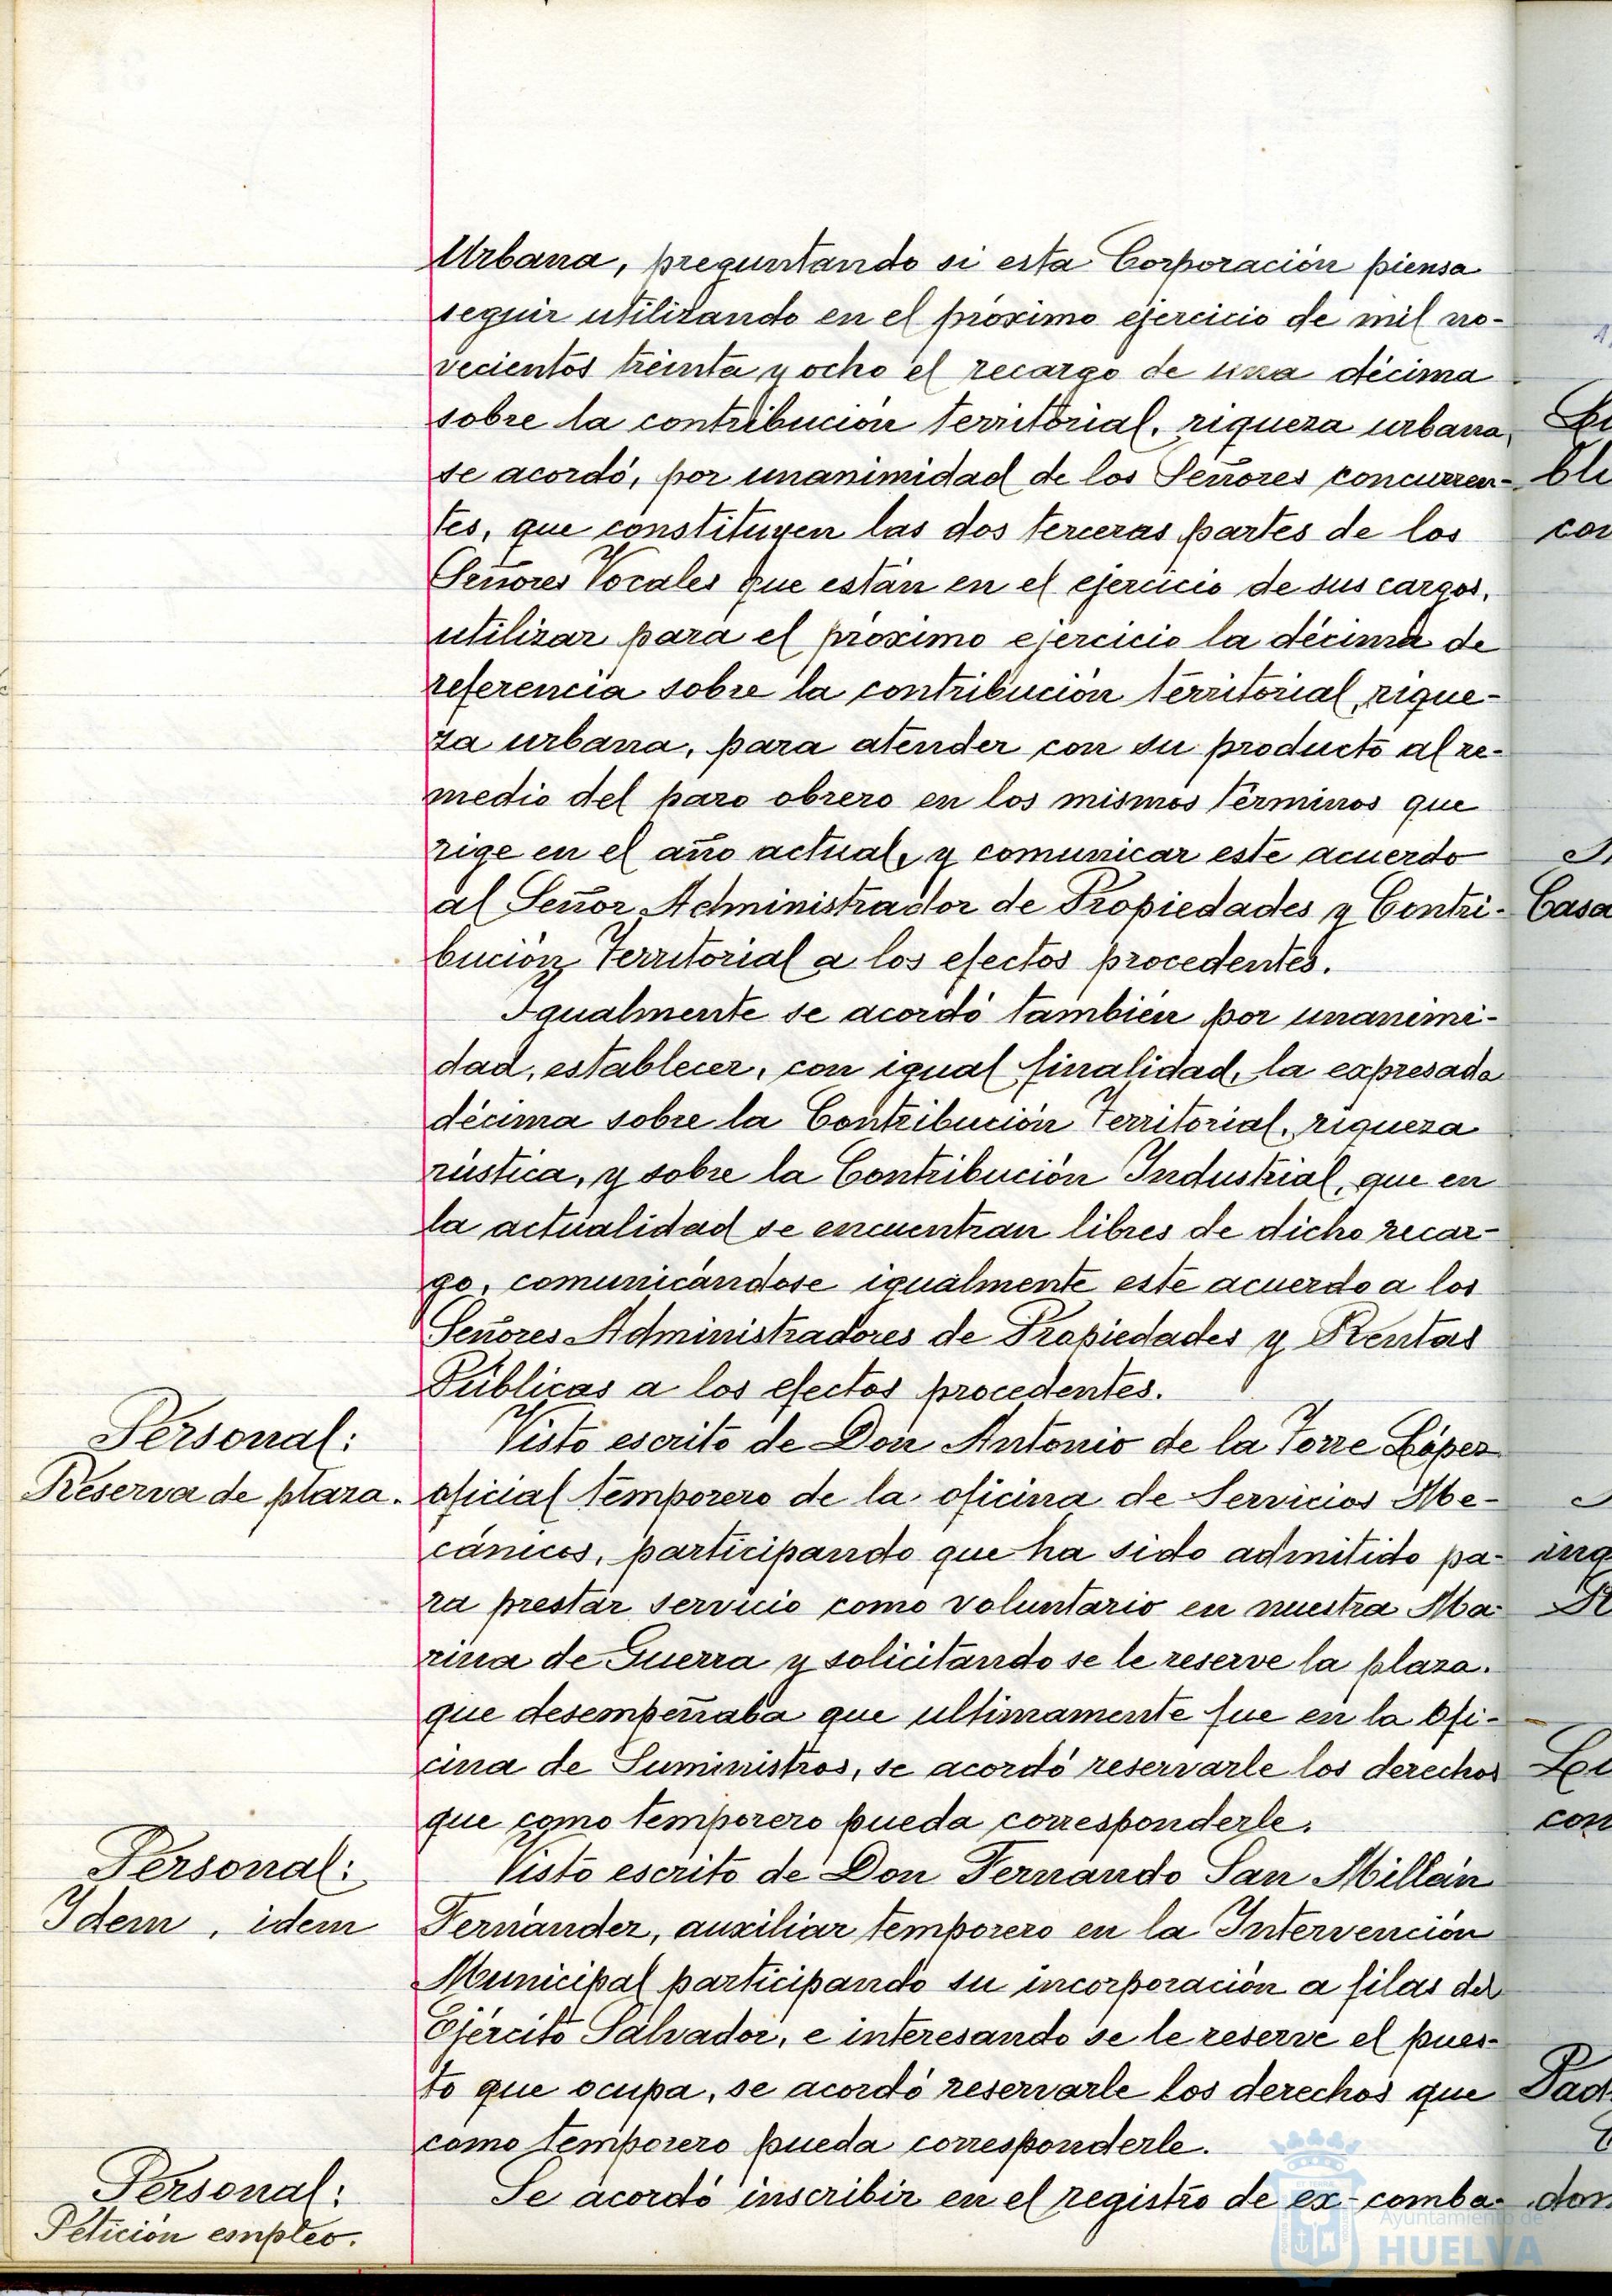 Urbana, preguntando si esta Corporación piensa
seguir utilizando en el próximo ejercicio de mil no-
vecientos treinta y ocho el recargo de una décima
sobre la contribución territorial, riqueza urbana,
se acordó, por unanimidad de los Señores concurren-
tes, que constituyen las dos terceras partes de los
Señores Vocales que están en el ejercicio de sus cargos,
utilizar para el próximo ejercicio la décima de
referencia sobre la contribución territorial, rique-
za urbana, para atender con su producto al re-
medio del paro obrero en los mismos términos que
rige en el año actual, y comunicar este acuerdo
al Señor Administrador de Propiedades y Contri-
bución Territorial a los efectos procedentes.
Igualmente se acordó también por unanimi-
dad, establecer, con igual finalidad, la expresada
décima sobre la Contribución Territorial, riqueza
rústica, y sobre la Contribución Industrial, que en
la actualidad se encuentran libres de dicho recar-
go, comunicándose igualmente este acuerdo a los
Señores Administradores de Propiedades y Rentas
Públicas a los efectos procedentes.
Personal:
Reserva de plaza.
Visto escrito de Don Antonio de la Torre López
oficial temporero de la oficina de Servicios Me-
cánicos, participando que ha sido admitido pa-
ra prestar servicio como voluntario en nuestra Ma-
rina de Guerra y solicitando se le reserve la plaza.
que desempeñaba que ultimamente fue en la Ofi-
cina de Suministros, se acordó reservarle los derechos
que como temporero pueda corresponderle.
Personal:
Idem, idem
Visto escrito de Don Fernando San Millán
Fernández, auxiliar temporero en la Intervención
Municipal participando su incorporación a filas del
Ejército Salvador, e interesando se le reserve el pues-
to que ocupa, se acordó reservarle los derechos que
como temporero pueda corresponderle.
Personal:
Petición empleo.
Se acordó inscribir en el registro de ex-comba-
Ayuntamiento de
HUELVA